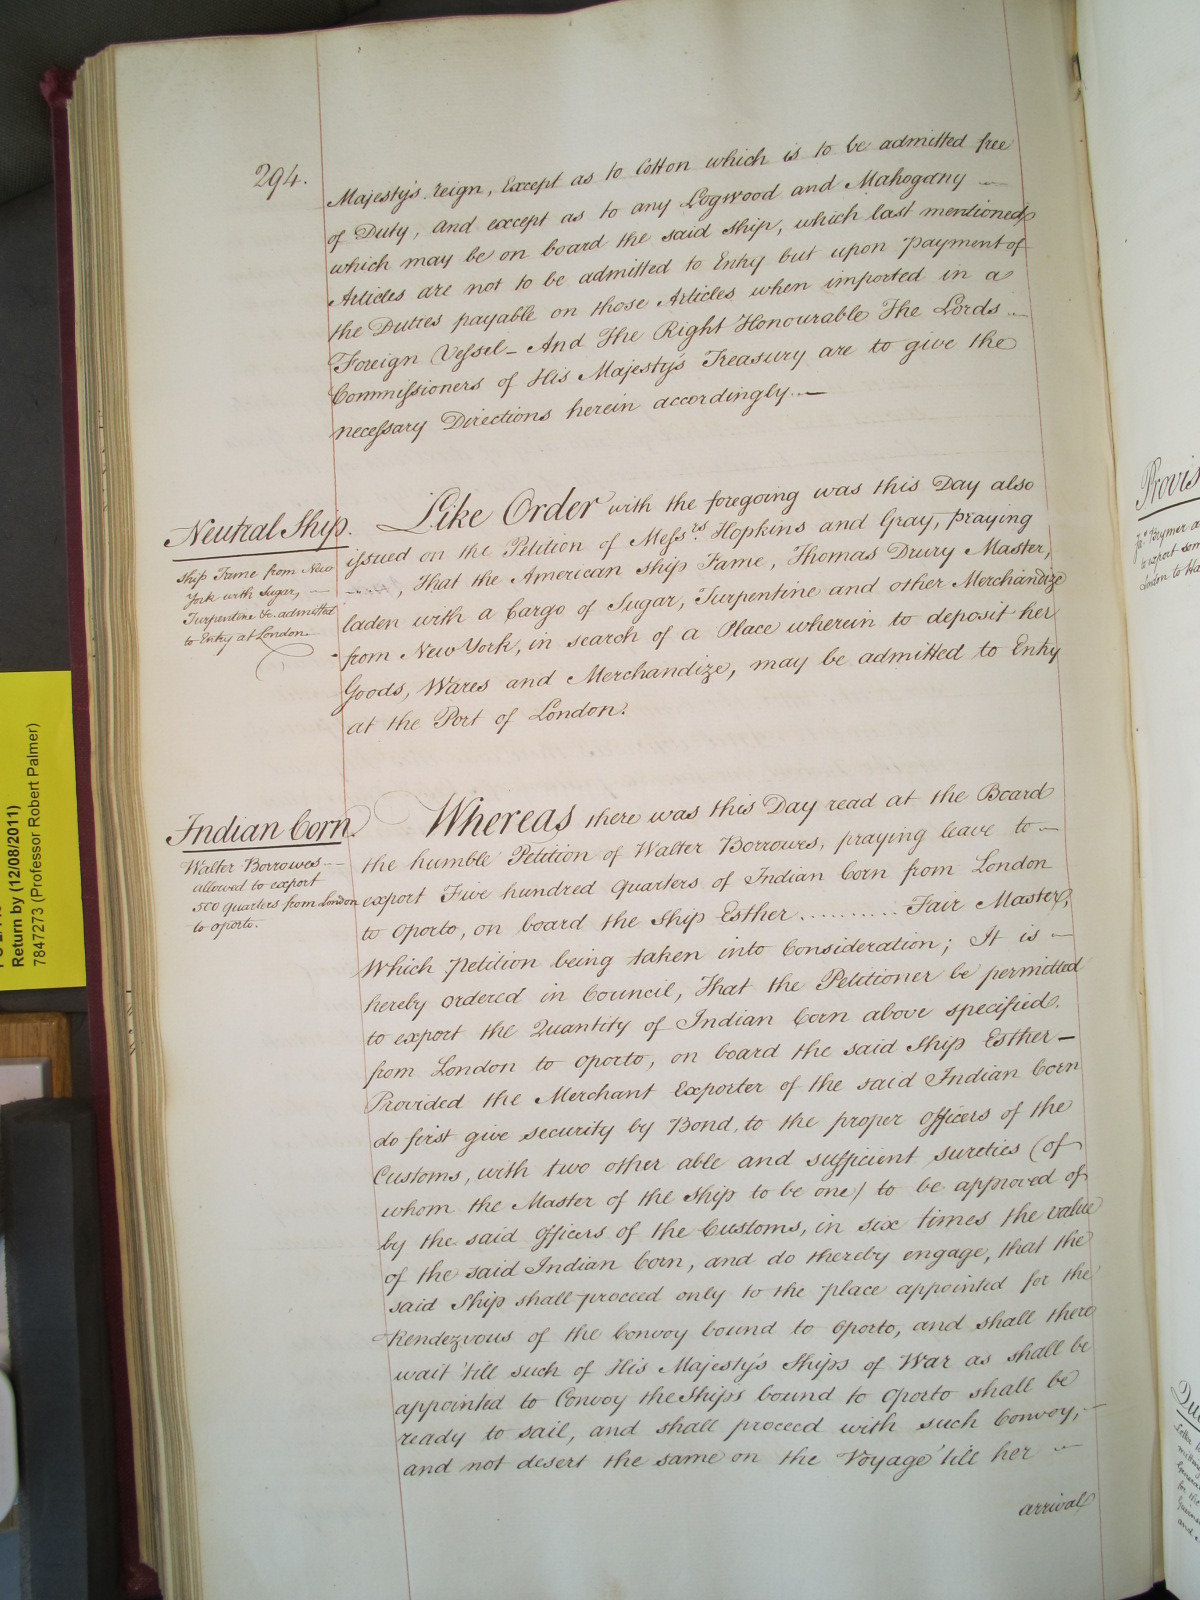 294.
Majesty's reign, Except as to Cotton which is to be admitted free
of Duty, and except as to any Logwood and Mahogany
which may be on board the said Ship, which last mentioned
Articles are not to be admitted to Entry but upon payment of
the Duties payable on those Articles when imported in a
Foreign Vessel - And The Right Honourable The Lords
Commissioners of His Majesty's Treasury are to give the
necessary Directions herein accordingly. —
Neutral Ship.
Ship Fame from New
York with Sugar,
Turpentine &c. admitted
to Entry at London
Like Order with the foregoing was this Day also
issued on the Petition of Messrs. Hopkins and Gray, praying
, That the American Ship Fame, Thomas Drury Master,
laden with a Cargo of Sugar, Turpentine and other Merchandize
from New York, in search of a Place wherein to deposit her
Goods, Wares and Merchandize, may be admitted to Entry
at the Port of London.
Indian Corn.
Walter Borrowes
allowed to export
500 quarters from London
to Oporto.
Whereas there was this Day read at the Board
the humble Petition of Walter Borrowes, praying leave to
export Five hundred Quarters of Indian Corn from London
to Oporto, on board the Ship Esther .......... Fair Master,
Which Petition being taken into Consideration; It is
hereby ordered in Council, That the Petitioner be permitted
to export the Quantity of Indian Corn above specified.
from London to Oporto, on board the said Ship Esther —
Provided the Merchant Exporter of the said Indian Corn
do first give security by Bond, to the proper Officers of the
Customs, with two other able and sufficient sureties (of
whom the Master of the Ship to be one) to be approved of
by the said Officers of the Customs, in six times the value
of the said Indian Corn, and do thereby engage, that the
said Ship shall proceed only to the place appointed for the
Rendezvous of the Convoy bound to Oporto, and shall there
wait 'till such of His Majesty's Ships of War as shall be
appointed to Convoy the Ships bound to Oporto shall be
ready to sail, and shall proceed with such Convoy,
and not desert the same on the Voyage 'till her
arrival
Return by (12/08/2011)
7847273 (Professor Robert Palmer)
Provis
to export som
London to Ha